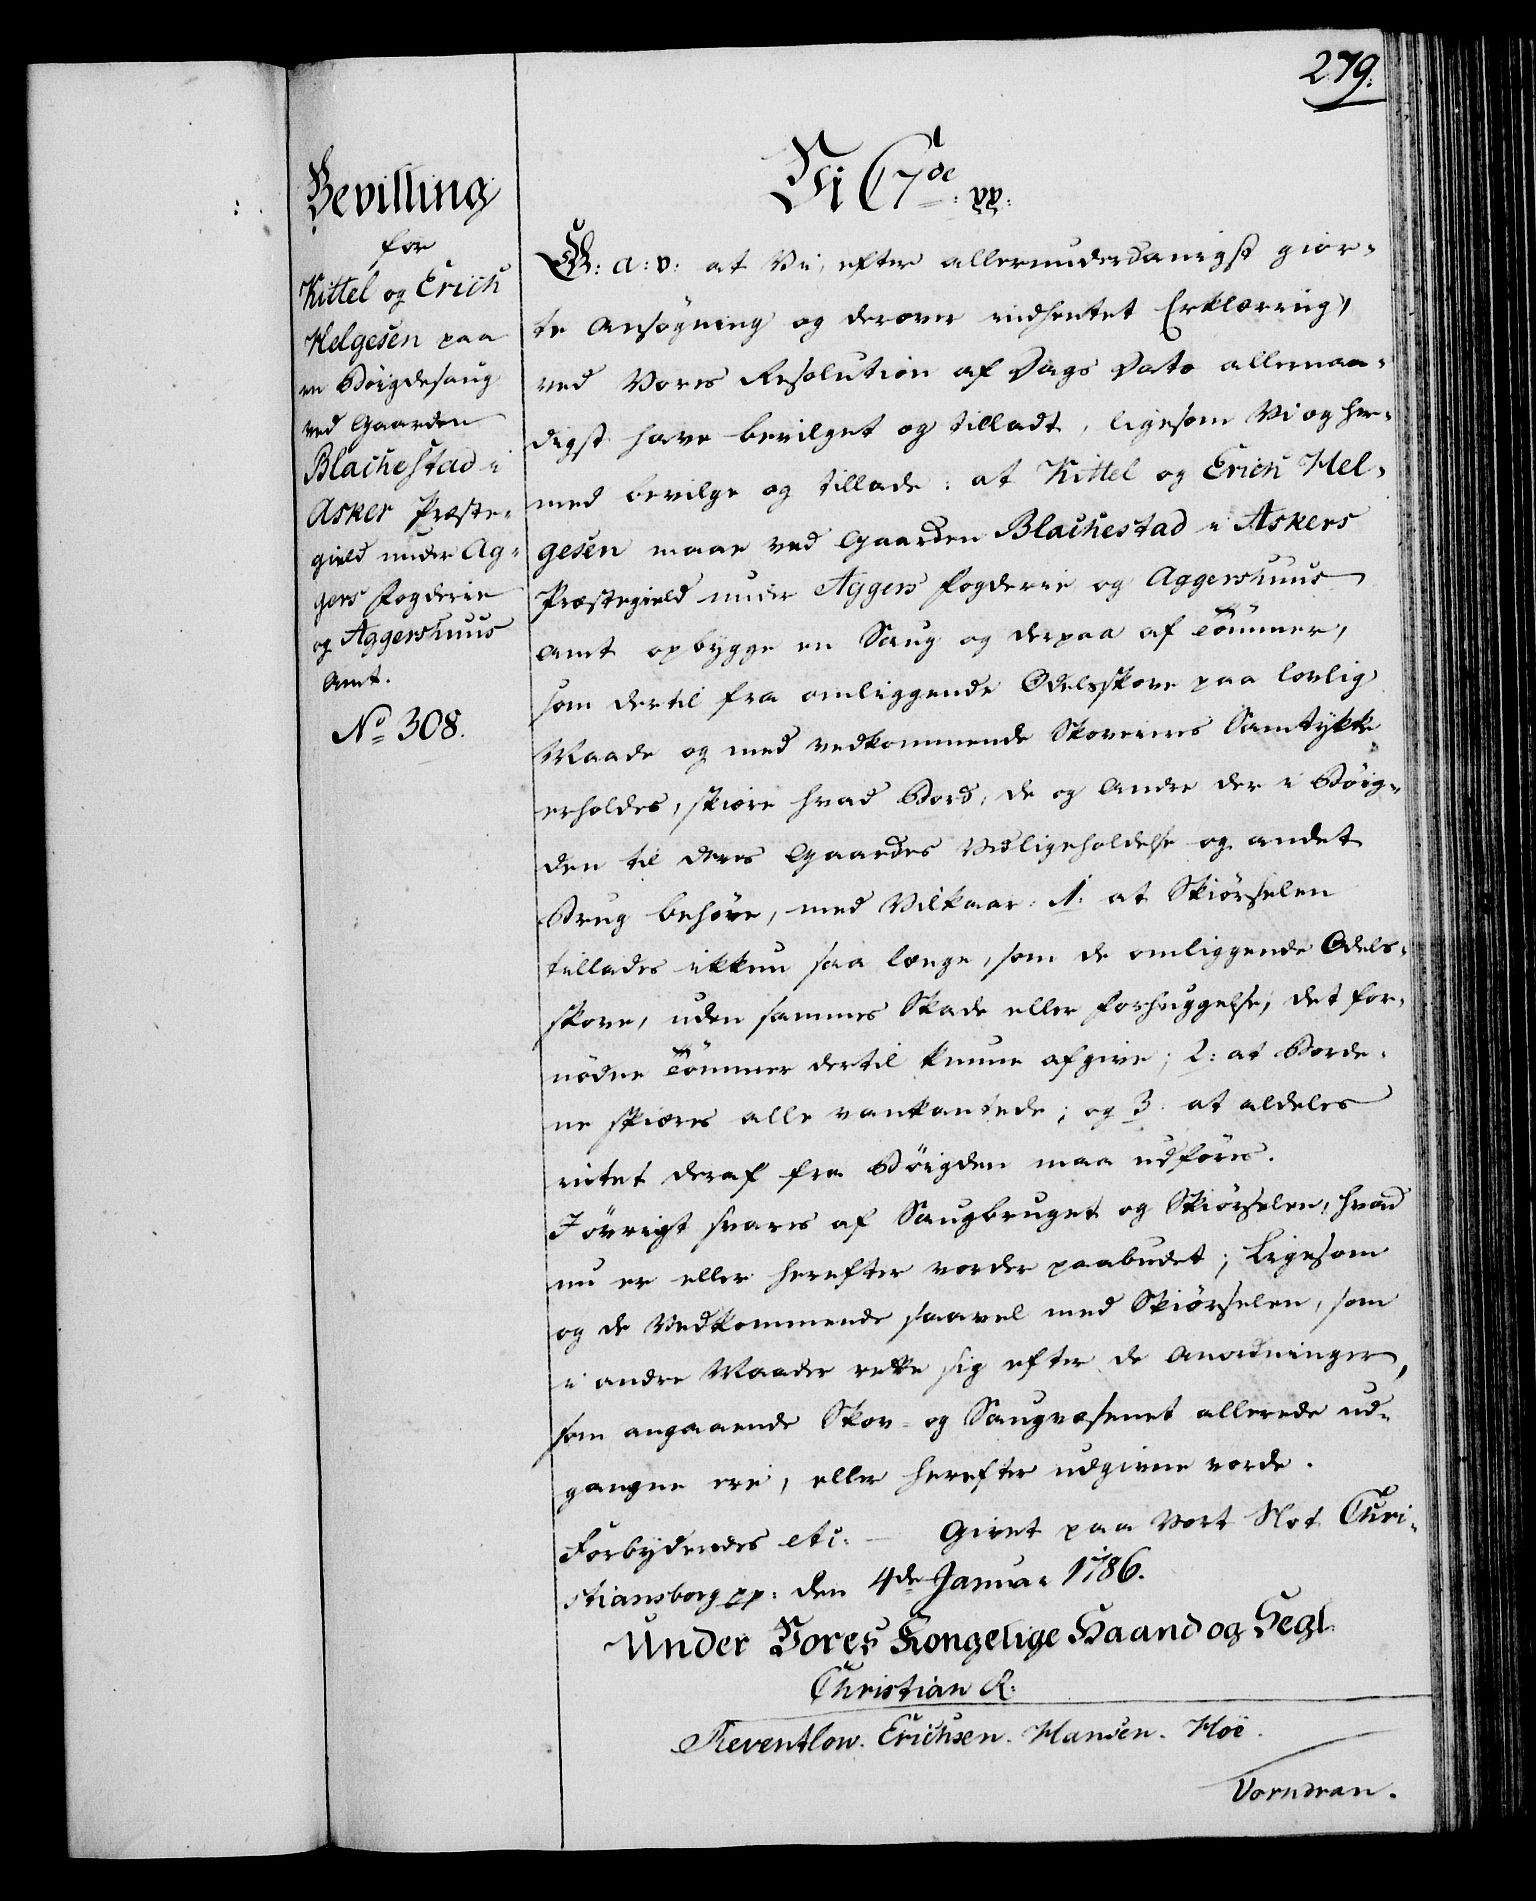 279.
Bevilling
for
Kittel og Erich
Helgesen paa
en Böigdesaug
ved Gaarden
Blachestad i
Asker Præste-
gield under Ag-
gers Fogderie
og Aggershuus
Amt.
No 308.
Vi C 7de: pp:
G: a: v: at Vi, efter allerunderdanigst gior-
te Ansøgning og derover indhentet Erklæring,
ved Vores Resolution af Dags Dato allernaa-
digst have bevilget og tilladt, ligesom Vi og her-
med bevilge og tillade: at Kittel og Erich Hel-
gesen maae ved Gaarden Blachestad i Askers
Præstegield under Aggers Fogderie og Aggershuus
Amt opbygge en Saug og derpaa af Tömmer,
som dertil fra omliggende Odelsskove paa lovlig
Maade og med vedkommende Skoveieres Samtykke
erholdes, skiære hvad Bord, de og Andre der i Böig-
den til deres Gaardes Vedligeholdelse og andet
Brug behöve, med Vilkaar: 1: at Skiörselen
tillades ikkun saa længe, som de omliggende Odels-
skove, uden sammes Skade eller Forhuggelse, det for-
nödne Tömmer dertil kunne afgive; 2: at Borde-
ne skiæres alle vankantede; og 3: at aldeles
intet deraf fra Böigden maa udföres.
I övrigt svares af Saugbruget og Skiörselen, hvad
nu er eller herefter vorder paabudet; Ligesom
og de Vedkommende saavel med Skiörselen, som
i andre Maader rette sig efter de Anordninger,
som angaaende Skov- og Saugvæsenet allerede ud-
gangne ere, eller herefter udgivne vorde.
Forbydendes etc: - Givet paa Vort Slot Chri-
stiansborg pp: den 4de Januar 1786.
Under Vores Kongelige Haand og Segl.
Christian R.
Reventlow. Erichsen. Hansen. Hoë.
Vorndran.